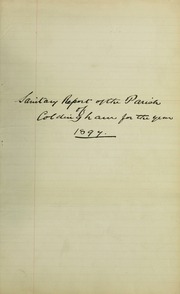 Sanitary Report of the Parish
of
Coldingham for the year
1897.